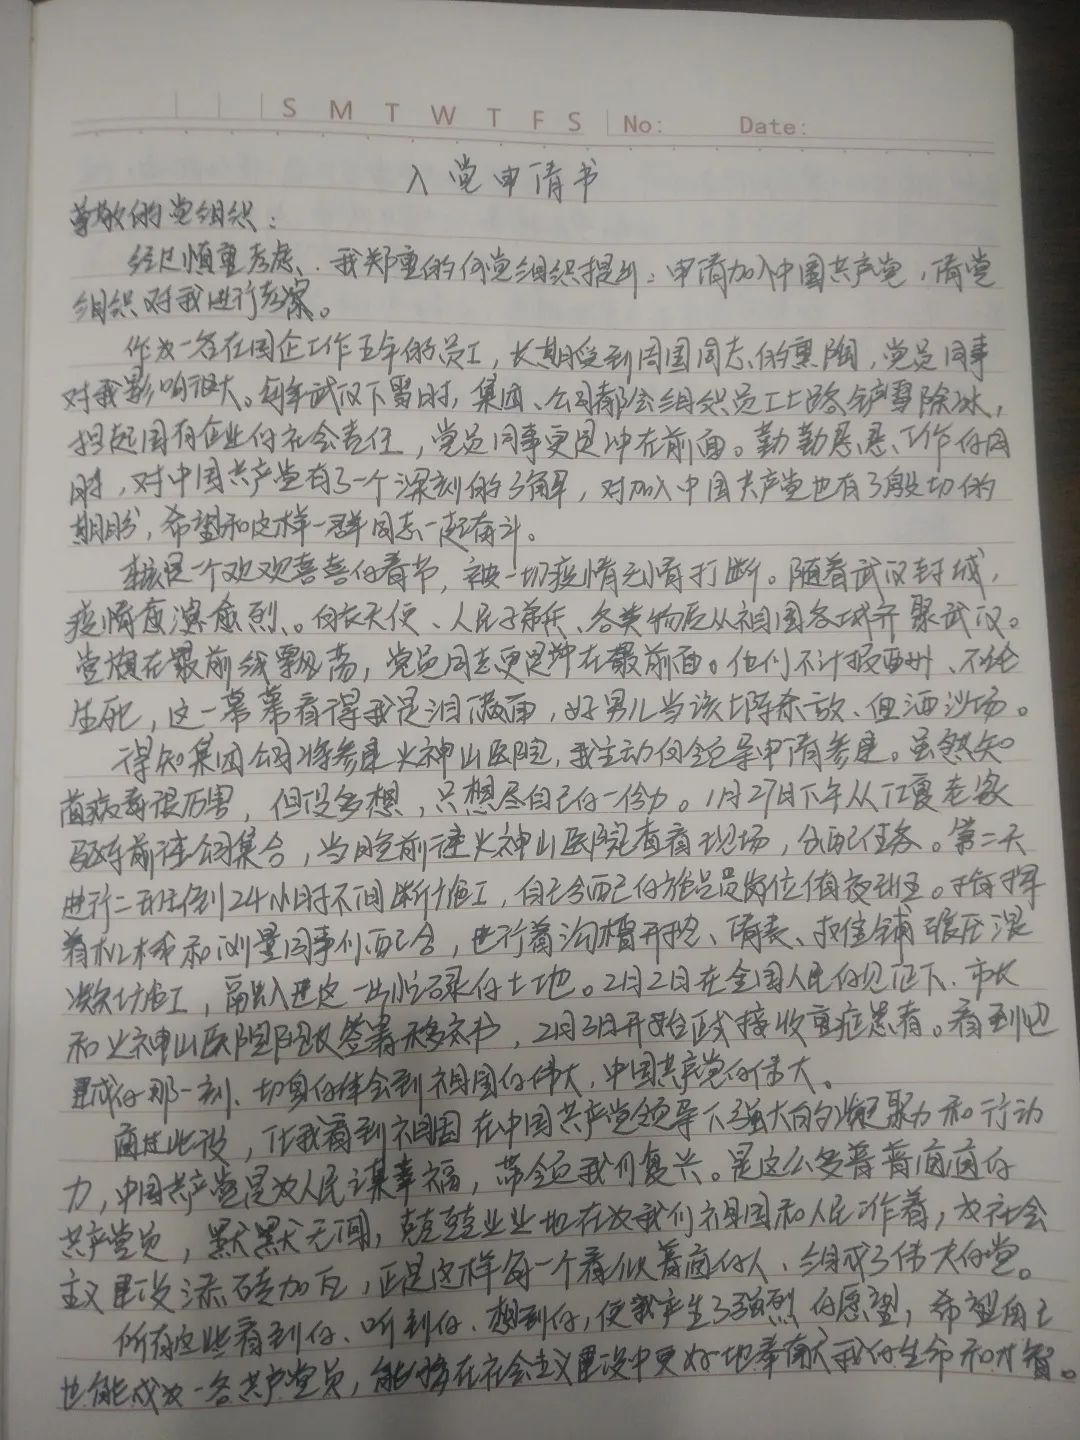 S M T W T F S No: Date:
入党申请书
尊敬的党组织：
经过慎重考虑，我郑重的向党组织提出：申请加入中国共产党，请党
组织对我进行考察。
作为一名在国企工作五年的员工，长期受到周围同志的熏陶，党员同事
对我影响很大。每年武汉下雪时，集团、公司都会组织员工上路铲雪除冰，
担起国有企业的社会责任，党员同事更是冲在前面。勤勤恳恳工作的同
时，对中国共产党有了一个深刻的了解，对加入中国共产党也有了殷切的
期盼，希望和这样一群同志一起奋斗。
本该是一个欢欢喜喜的春节，被一切疫情无情打断。随着武汉封城，
疫情愈演愈烈、白衣天使、人民子弟兵、各类物资从祖国各域齐聚武汉。
党旗在最前线飘荡，党员同志更是冲在最前面。他们不计报酬、不论
生死，这一幕幕看得我是泪满面，好男儿当该上阵杀敌、血洒沙场。
得知集团公司将参建火神山医院，我主动向领导申请参建。虽然知
道病毒很厉害，但没多想，只想尽自己的一份力。1月27日下午从江夏老家
驱车前往公司集合，当晚前往火神山医院查看现场，分配任务。第二天
进行二班倒24小时不间断施工，自己分配的施工员岗位值夜班。指挥
着机械和测量同事们配合，进行着沟槽开挖、清表、找住铺碾压混
凝土施工，融入进这一片忙碌的土地。2月2日在全国人民的见证下，市长
和火神山医院院长签署移交书，2月3日开始正式接收重症患者。看到它
建成的那一刻、切身的体会到祖国的伟大，中国共产党的伟大。
通过此役，让我看到祖国在中国共产党领导下强大的凝聚力和行动
力，中国共产党是为人民谋幸福，带领我们复兴。是这么多普普通通的
共产党员，默默无闻，兢兢业业地在为我们祖国和人民工作着，为社会
主义建设添砖加瓦，正是这样每一个看似普通的人、组成了伟大的党。
所有这些看到的、听到的、想到的，使我产生了强烈的愿望，希望自己
也能成为一名共产党员，能够在社会主义建设中更好地奉献我的生命和才智。